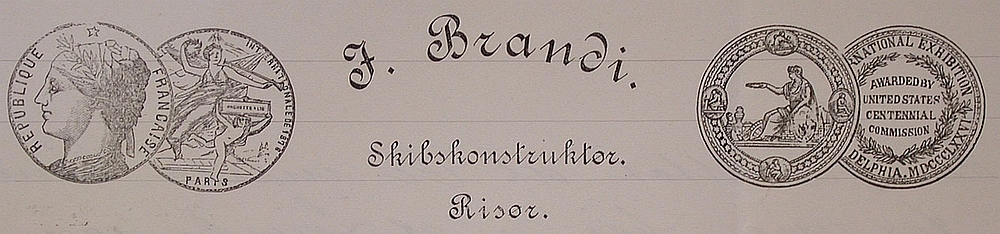 RÉPUBLIQUE FRANÇAISE
INTERNATIONALE DE 1878
PARIS
J. Brandi.
Skibskonstruktør.
Risør.
NATIONAL EXHIBITION
DELPHIA, MDCCCLXXVI
AWARDED BY
UNITED STATES
CENTENNIAL
COMMISSION